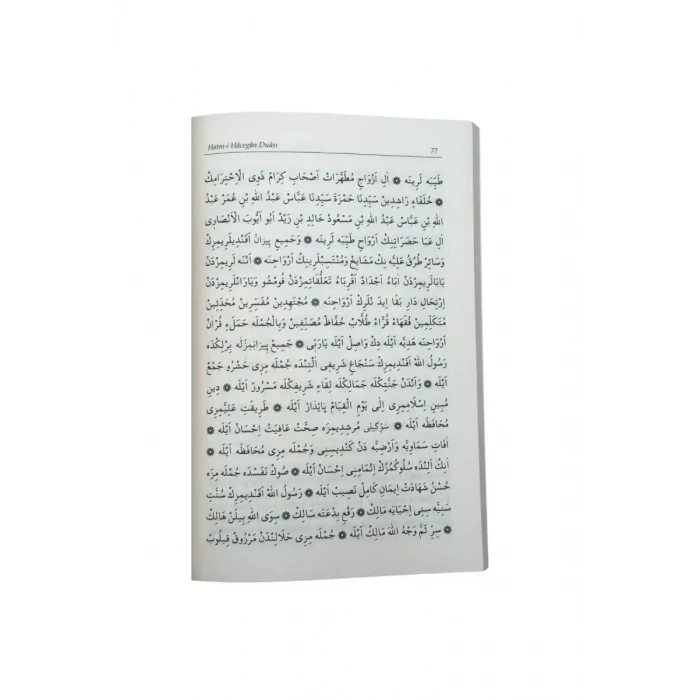 Hatm-i Hâcegân Duâsı 77
طَيِّبَه لَرِينَه ۞ اٰلِ اَزْوَاجِ مُطَهَّرَاتْ اَصْحَابِ كِرَامْ ذَوِى الْاِحْتِرَامِكْ
۞ خُلَفَاءِ رَاشِدِينْ سَيِّدِنَا حَمْزَه سَيِّدِنَا عَبَّاسْ عَبْدُ اللهِ بْنِ عُمَرْ عَبْدُ
اللهِ بْنِ عَبَّاسْ عَبْدُ اللهِ بْنِ مَسْعُودْ خَالِدِ بْنِ زَيْدْ اَبُو اَيُّوبَ الْاَنْصَارِى
اٰلِ عَبَا حَضَرَاتِنِكْ اَرْوَاحِ طَيِّبَه لَرِينَه ۞ وَجَمِيعِ پِيرَانْ اَفَنْدِيلَرِيمِزِكْ
وَسَائِرْ طُرُقِ عَلِيَّه نِكْ مَشَايِخْ وَمُنْتَسِبْلَرِينِكْ اَرْوَاحِنَه ۞ اَنْنَه لَرِيمِزْدَنْ
بَابَالَرِيمِزْدَنْ اٰبَاءْ اَجْدَادْ اَقْرِبَاءْ تَعَلُّقَاتِمِزْدَنْ قُومْشُو وَيَارَانْلَرِيمِزْدَنْ
اِرْتِحَالِ دَارِ بَقَا اِيدَنْ لَرِكْ اَرْوَاحِنَه ۞ مُجْتَهِدِينْ مُفَسِّرِينْ مُحَدِّثِينْ
مُتَكَلِّمِينْ فُقَهَاءْ قُرَّاءْ طُلَّابْ حُفَّاظْ مُصَنِّفِينْ وَبِالْجُمْلَه حَمَلَۀِ قُرْاٰنْ
اَرْوَاحِنَه هَدِيَّه اَيْلَه دِكْ وَاصِلْ اَيْلَه يَارَبِّى ۞ جَمِيعِ پِيرَانِمِزْلَه بِرْلِكْدَه
رَسُولُ اللهْ اَفَنْدِيمِزِكْ سَنْجَاغِ شَرِيفِى اٰلْتِنْدَه جُمْلَه مِزِى حَشْرُو جَمْعْ
اَيْلَه ۞ وَاَنْدَنْ جَنَّتِكْلَه جَمَالِكْلَه لِقَاءِ شَرِيفِكْلَه مَسْرُورْ اَيْلَه ۞ دِينِ
مُبِينِ اِسْلَامِمِزِى اِلٰى يَوْمِ الْقِيَامْ پَايِدَارْ اَيْلَه ۞ طَرِيقَتِ عَلِيَّمِزِى
مُحَافَظَه اَيْلَه ۞ سَوْكِيلِى مُرْشِدِيمِزَه صِحَّتْ عَافِيَتْ اِحْسَانْ اَيْلَه ۞
اٰفَاتِ سَمَاوِيَّه وَاَرْضِيَّه دَنْ كَنْدِيسِنِى وَجُمْلَه مِزِى مُحَافَظَه اَيْلَه ۞
اَنِكْ اَلِنْدَه سُلُوكُمُزُكْ اِتْمَامِنِى اِحْسَانْ اَيْلَه ۞ صُوكْ نَفَسْدَه جُمْلَه مِزَه
حُسْنِ شَهَادَتْ اِيمَانِ كَامِلْ نَصِيبْ اَيْلَه ۞ رَسُولُ اللهْ اَفَنْدِيمِزِكْ سُنَّتِ
سَنِيَّه سِنِى اِحْيَايَه مَالِكْ ۞ رَفْعِ بِدْعَتَه سَالِكْ ۞ سِوَى اللهِ بِيلَنْ هَالِكْ
۞ سِرِّ ثَمَّ وَجْهُ اللهْ مَالِكْ اَيْلَه ۞ جُمْلَه مِزِى حَلَالِنْدَنْ مَرْزُوقْ قِيلُوبْ